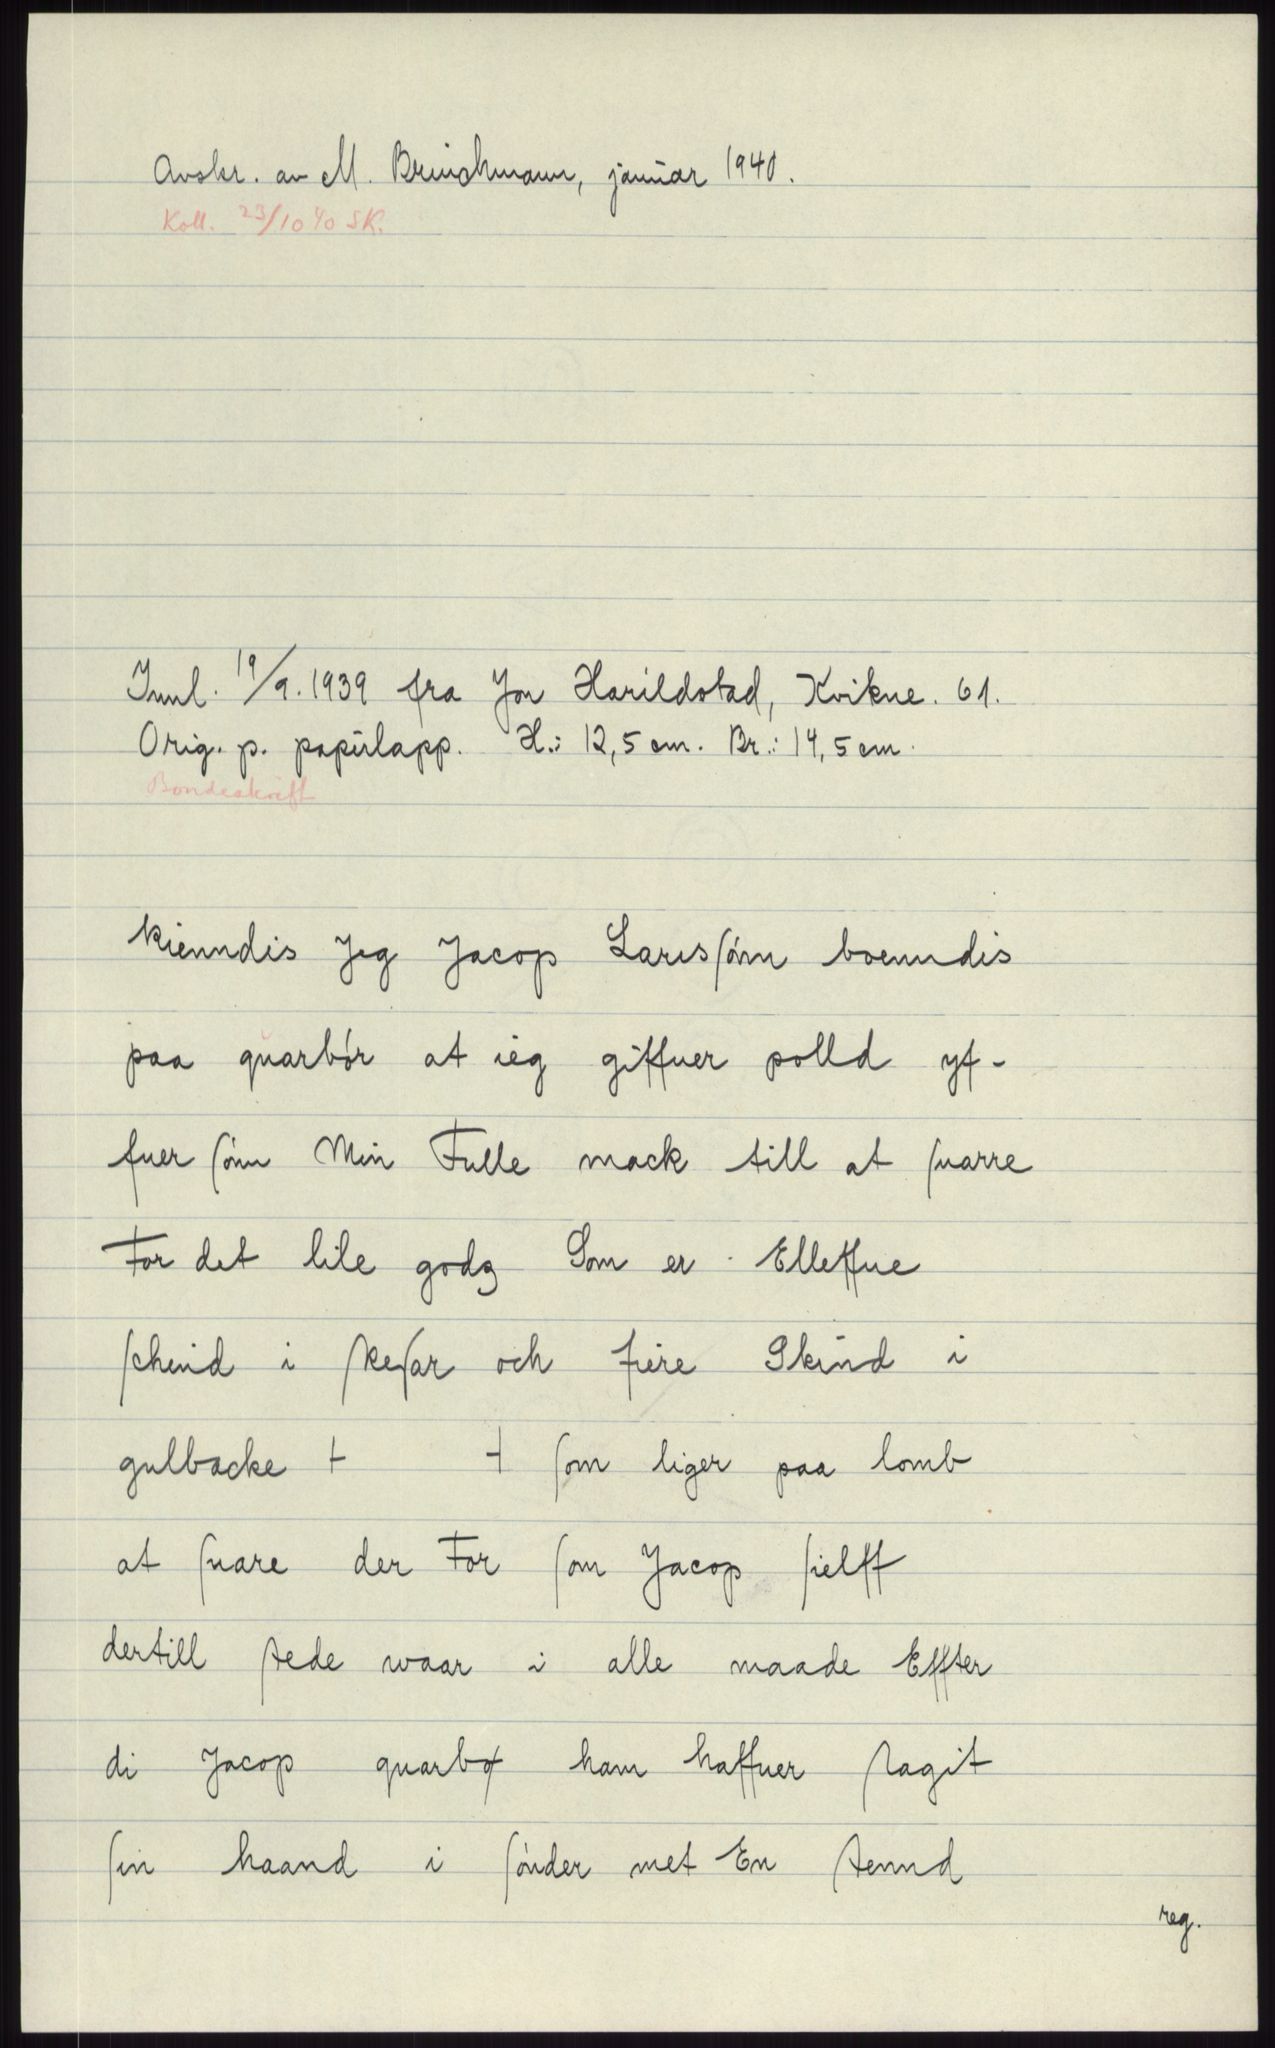 Avskr. av M. Brinchmann, januar 1940.
Koll. 23/10 40 SK.
Innl. 19/9. 1939 fra Jon Harildstad, Kvikne. 61.
Orig. p. papirlapp. H.: 12,5 cm. Br.: 14,5 cm.
Bondeskrift
kienndis Jeg Jacop Larissønn boenndis
paa quarbør at ieg giffuer polld yf-
fuer sønn Min Fulle mack till at suarre
For det lile godz Som er Elleffue
schind i skesar och fiere Skind i
gulbacke + + som liger paa lomb
at suare der For som Jacop sielff
dertill stede waar i alle maade Effter
di Jacop quarbø ham haffuer slagit
sin haand i sønder met En stennd
reg.